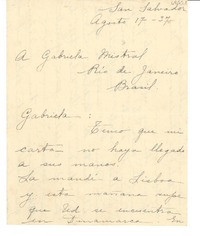 San Salvador
Agosto 17 -
A Gabriela Mistral
Río de Janeiro
Brasil
Gabriela:
Temo que mi
carta no haya llegado
a sus manos.
La mandé a Lisboa
y esta mañana supe
que Ud. se encuentra
en Dinamarca. En